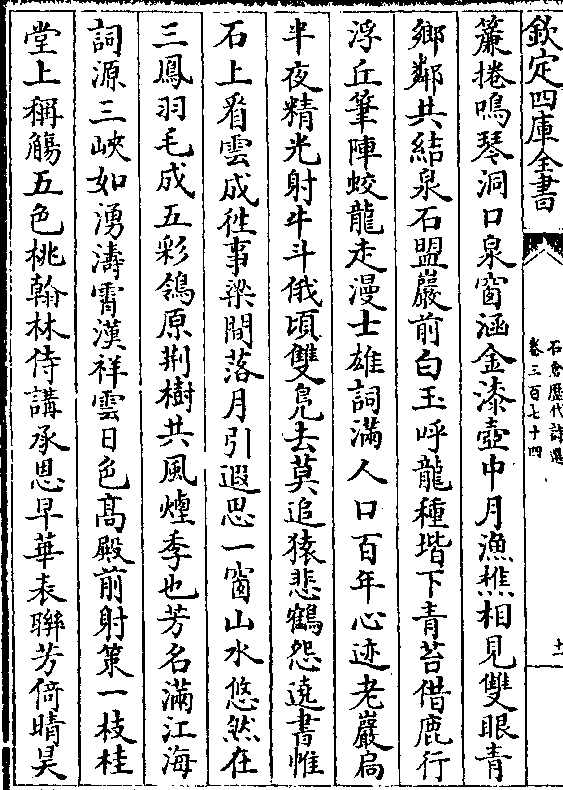 欽定四庫全書
石倉歷代詩選
卷三百七十四
十一
簾捲鳴琴洞口泉窗涵金漆壺中月漁樵相見雙眼青
鄉鄰共結泉石盟巖前白玉呼龍種堦下青苔借鹿行
浮丘筆陣蛟龍走漫士雄詞滿人口百年心迹老巖扃
半夜精光射牛斗俄頃雙鳧去莫追猿悲鶴怨遶書帷
石上看雲成徃事梁間落月引遐思一窗山水悠然在
三鳳羽毛成五彩鴒原荆樹共風煙季也芳名滿江海
詞源三峽如湧濤霄漢祥雲日色髙殿前射策一枝桂
堂上稱觴五色桃翰林侍講承恩早華表聯芳倚晴昊